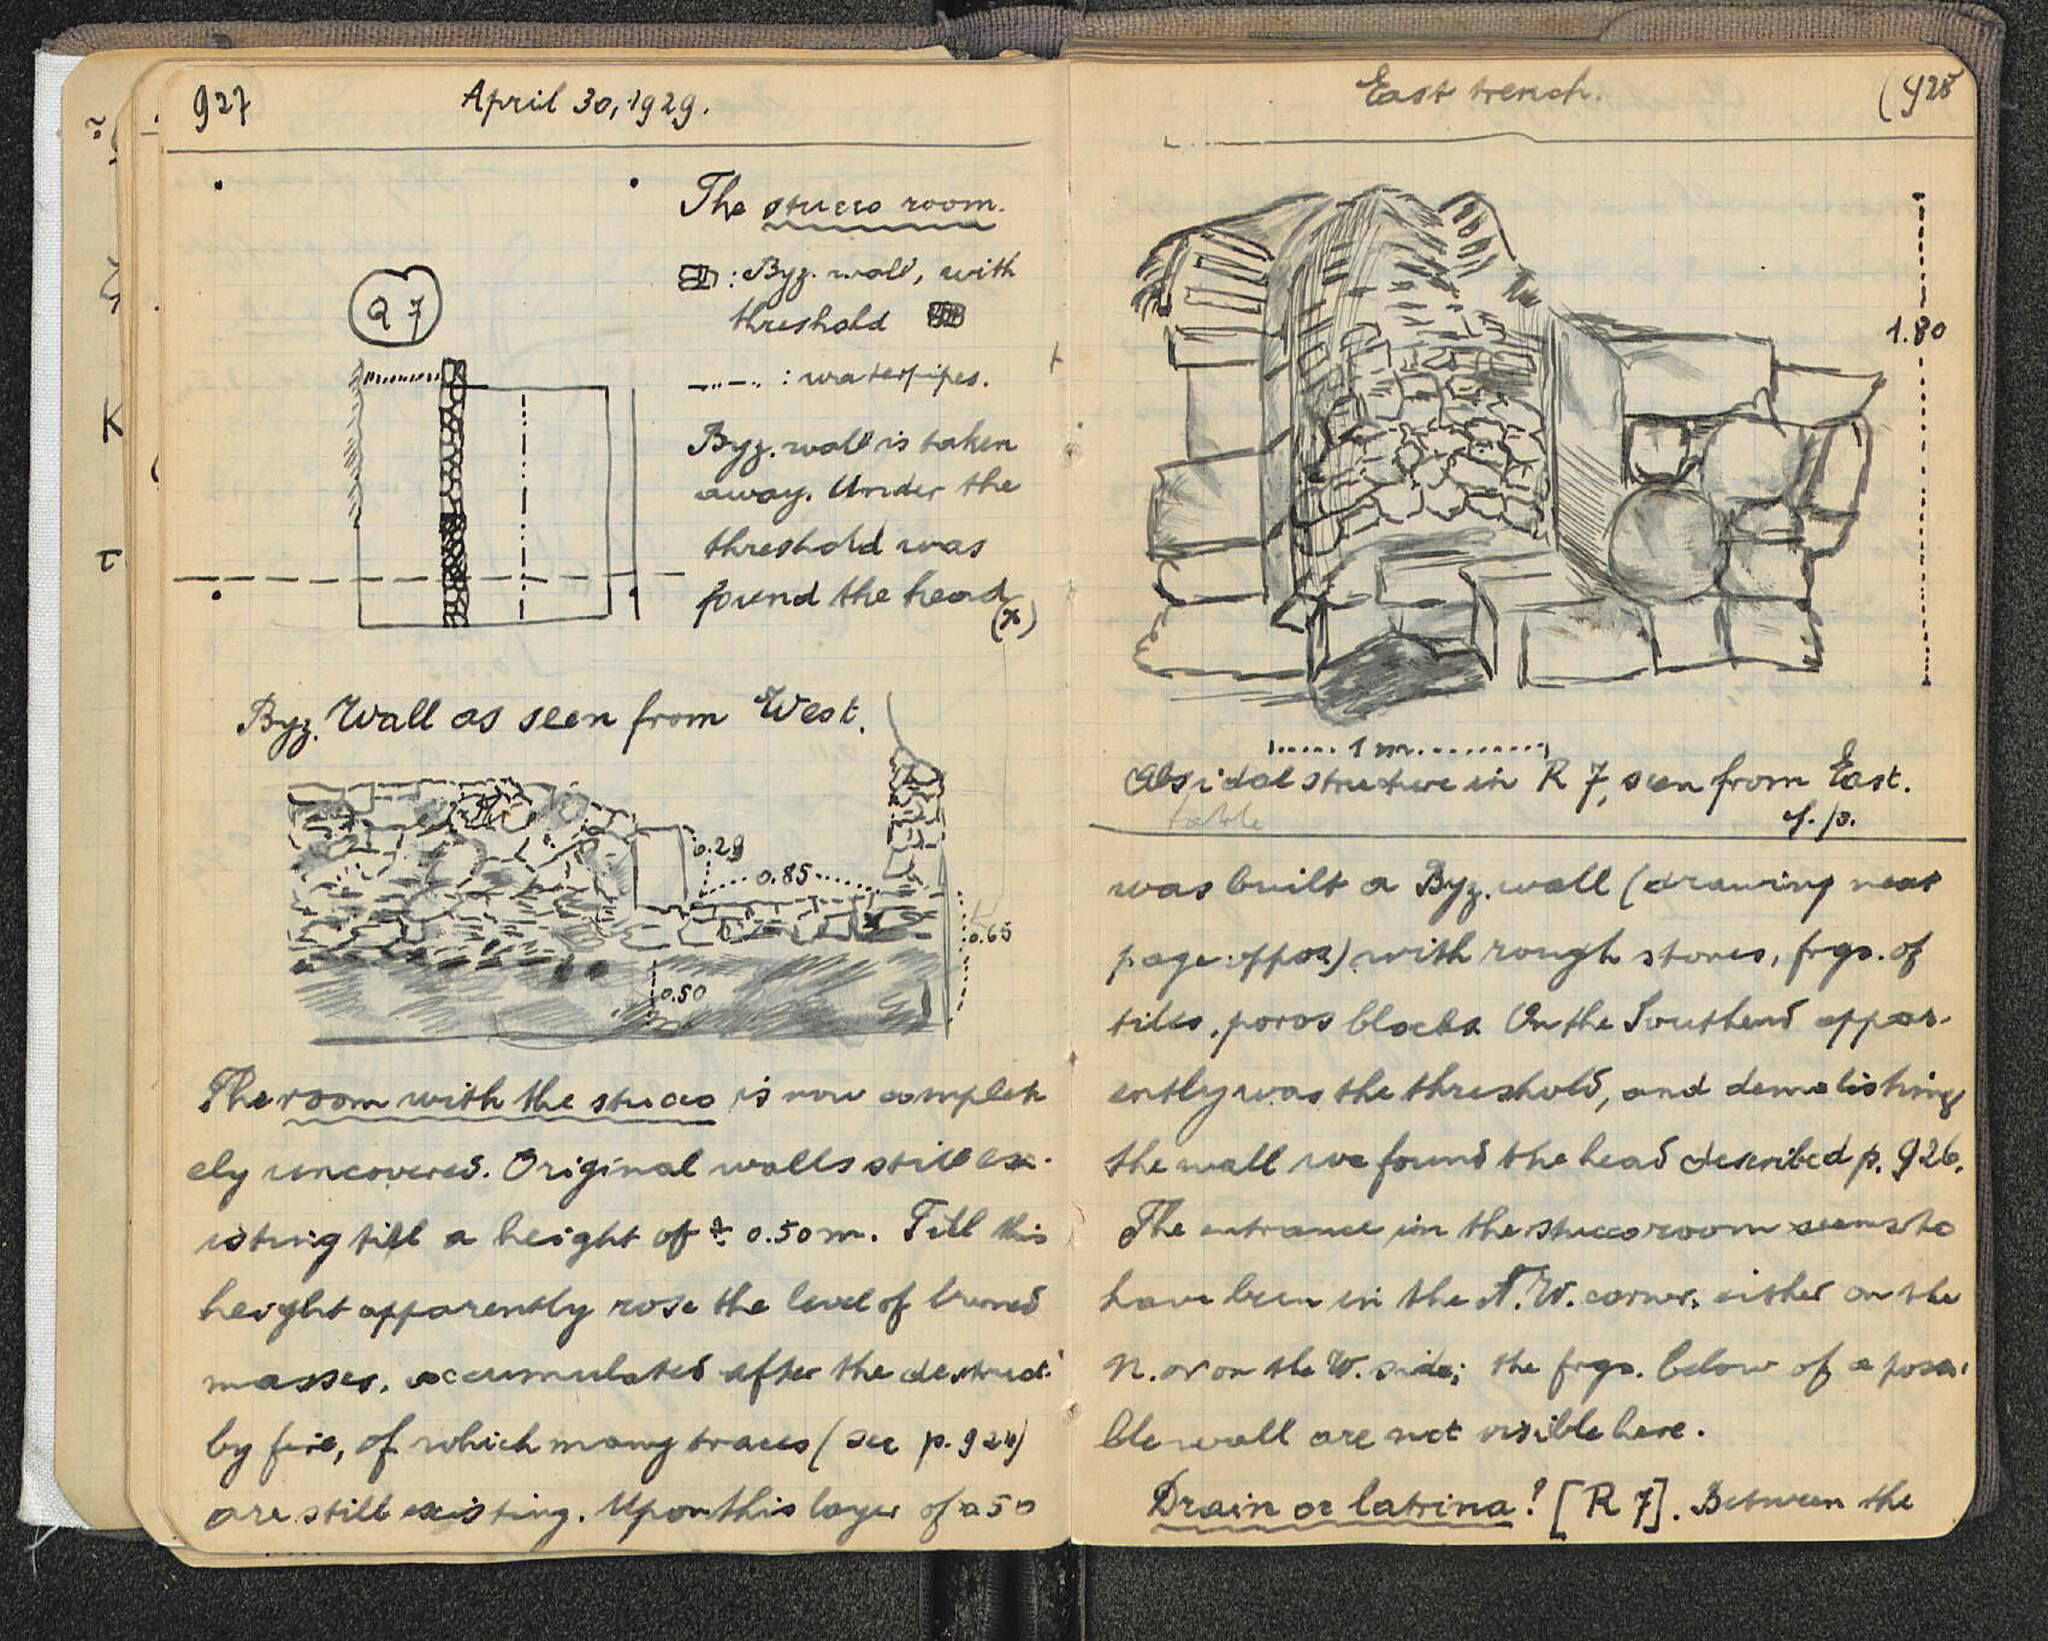 927
April 30, 1929.
The stucco room.
: Byz. wall, with
threshold
: waterpipes.
Q 7
Byz. wall is taken
away. Under the
threshold was
found the head
(x)
Byz. Wall as seen from West.
0.29
0.85
0.65
0.50
The room with the stucco is now complet
ely uncovered. Original walls still ex-
isting till a height of ± 0.50 m. Till this
height apparently rose the level of burned
masses, accumulated after the destruct.
by fire, of which many traces (see p. 924)
are still existing. Upon this layer of a 50
East trench.
(928
1.80
1 m.
Absidal structure in R 7, seen from East.
table
cf. p.
was built a Byz. wall (drawing next
page oppos) with rough stones, frgs. of
tiles, poros blocks. On the South end appar-
ently was the threshold, and demolishing
the wall we found the head described p. 926.
The entrance in the stuccoroom seems to
have been in the N.W. corner, either on the
N. or on the W. side; the frgs. below of a possi-
ble wall are not visible here.
Drain or latrina? [R 7]. Between the